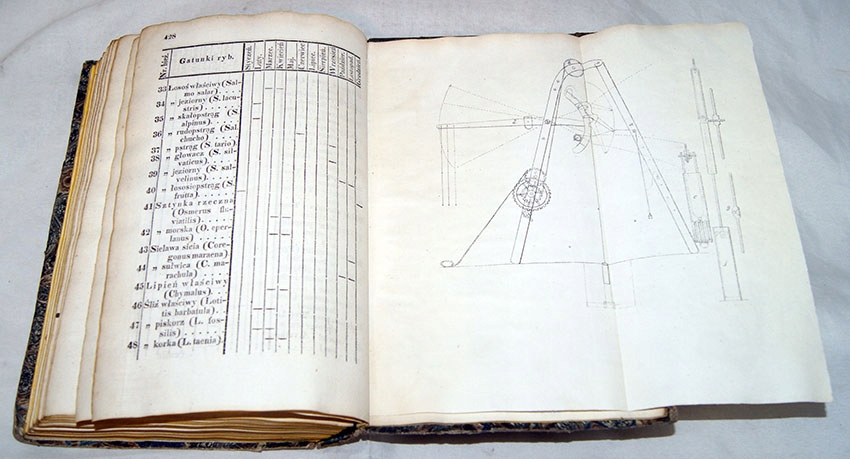 428
Nr. bież.
Gatunki ryb.
Styczeń.
Luty.
Marzec.
Kwiecień
Maj.
Czerwiec
Lipiec.
Sierpień.
Wrzesień
Paździer.
Listopad.
33 Łosoś właściwy (Sal-
mo salar) . . . .
34 „ jeziorny (S. lacu-
stris) . . . . .
35 „ skałopstrąg (S.
alpinus) . . . .
36 „ rudopstrąg (Sal.
chucho) . . . .
37 „ pstrąg (S. tario) .
38 „ głowacz (S. sil-
vaticus) . . . .
39 „ jeziorny (S. sal-
velinus) . . . .
40 „ łososiopstrąg (S.
frutta) . . . .
41 Sztynka rzeczna
(Osmerus flu-
viatilis) . . . .
42 „ morska (O. eper-
lanus) . . . .
43 Sielawa sieia (Core-
gonus maraena)
44 „ sulwica (C. ma-
rachula) . . . .
45 Lipień właściwy
(Chymalus) . . .
46 Śliż właściwy (Loti-
tis barbatula) . .
47 „ piskorz (L. fos-
silis) . . . . .
48 „ korka (L. taenia) .